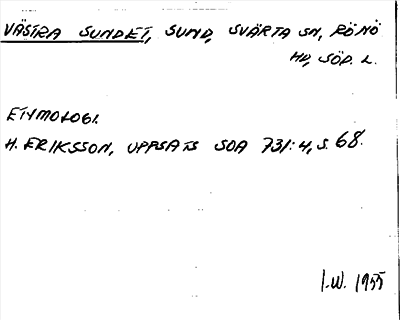 VÄSTRA SUNDET, SUND, SVÄRTA SN, RÖNÖ
HD, SÖD. L.
ETYMOLOGI.
H. ERIKSSON, UPPSATS SOA 731:4, S. 68.
I.W. 1955